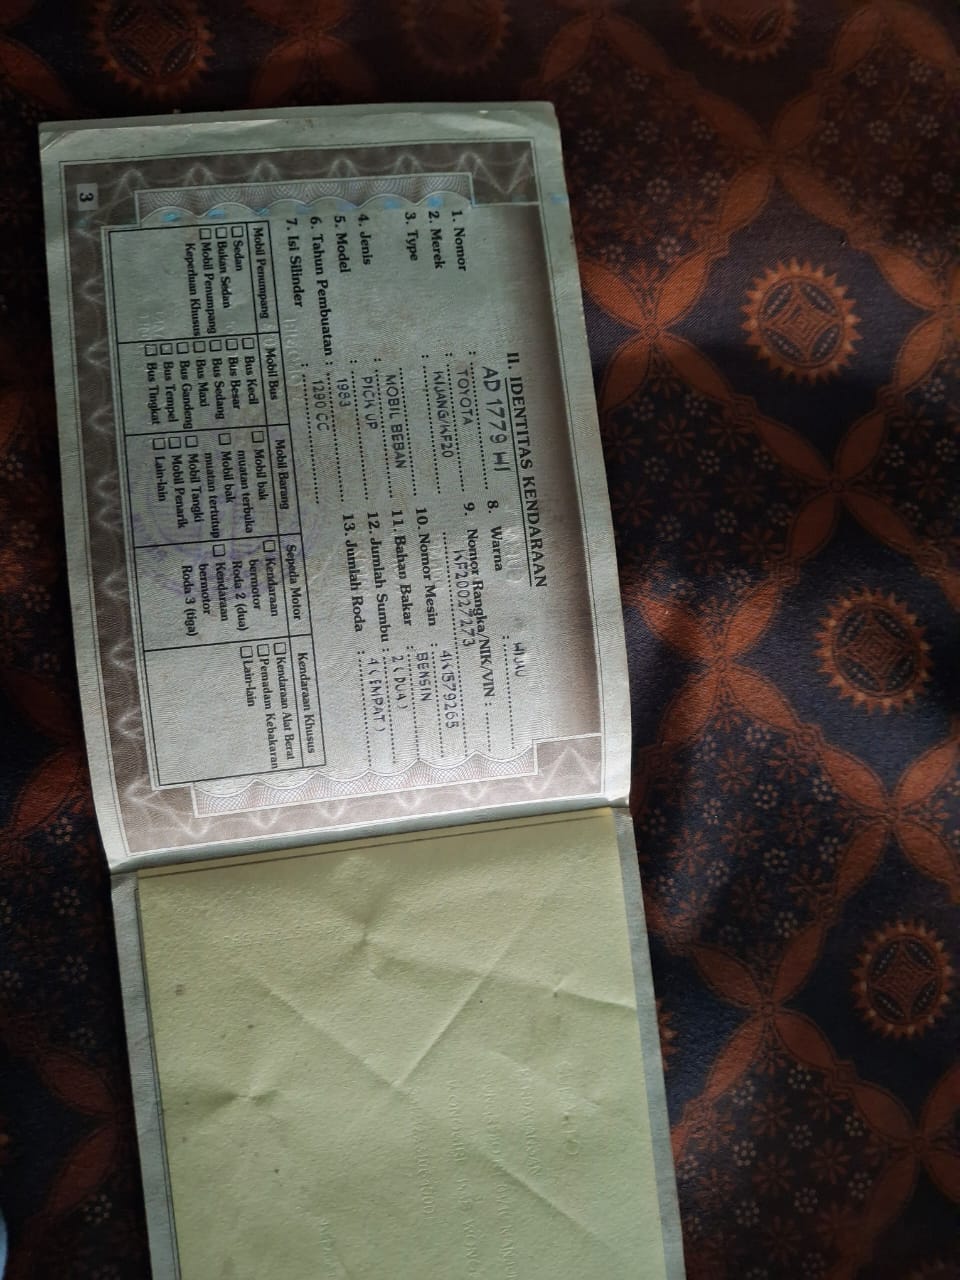 II. IDENTITAS KENDARAAN
1. Nomor : AD 1779 WI
2. Merek : TOYOTA
3. Type : KIJANG/KF20
4. Jenis : MOBIL BEBAN
5. Model : PICK UP
6. Tahun Pembuatan : 1983
7. Isi Silinder : 1290 CC
8. Warna :
9. Nomor Rangka/NIK/VIN :
KF20027273
10. Nomor Mesin : 4K1579265
11. Bahan Bakar : BENSIN
12. Jumlah Sumbu : 2 ( DUA )
13. Jumlah Roda : 4 ( EMPAT )
Mobil Penumpang
☐ Sedan
☐ Bukan Sedan
☐ Mobil Penumpang
Keperluan Khusus
Mobil Bus
☐ Bus Kecil
☐ Bus Besar
☐ Bus Sedang
☐ Bus Maxi
☐ Bus Gandeng
☐ Bus Tempel
☐ Bus Tingkat
Mobil Barang
☐ Mobil bak
muatan terbuka
☐ Mobil bak
muatan tertutup
☐ Mobil Tangki
☐ Mobil Penarik
☐ Lain-lain
Sepeda Motor
☐ Kendaraan
bermotor
Roda 2 (dua)
☐ Kendaraan
bermotor
Roda 3 (tiga)
Kendaraan Khusus
☐ Kendaraan Alat Berat
☐ Pemadam Kebakaran
☐ Lain-lain
3